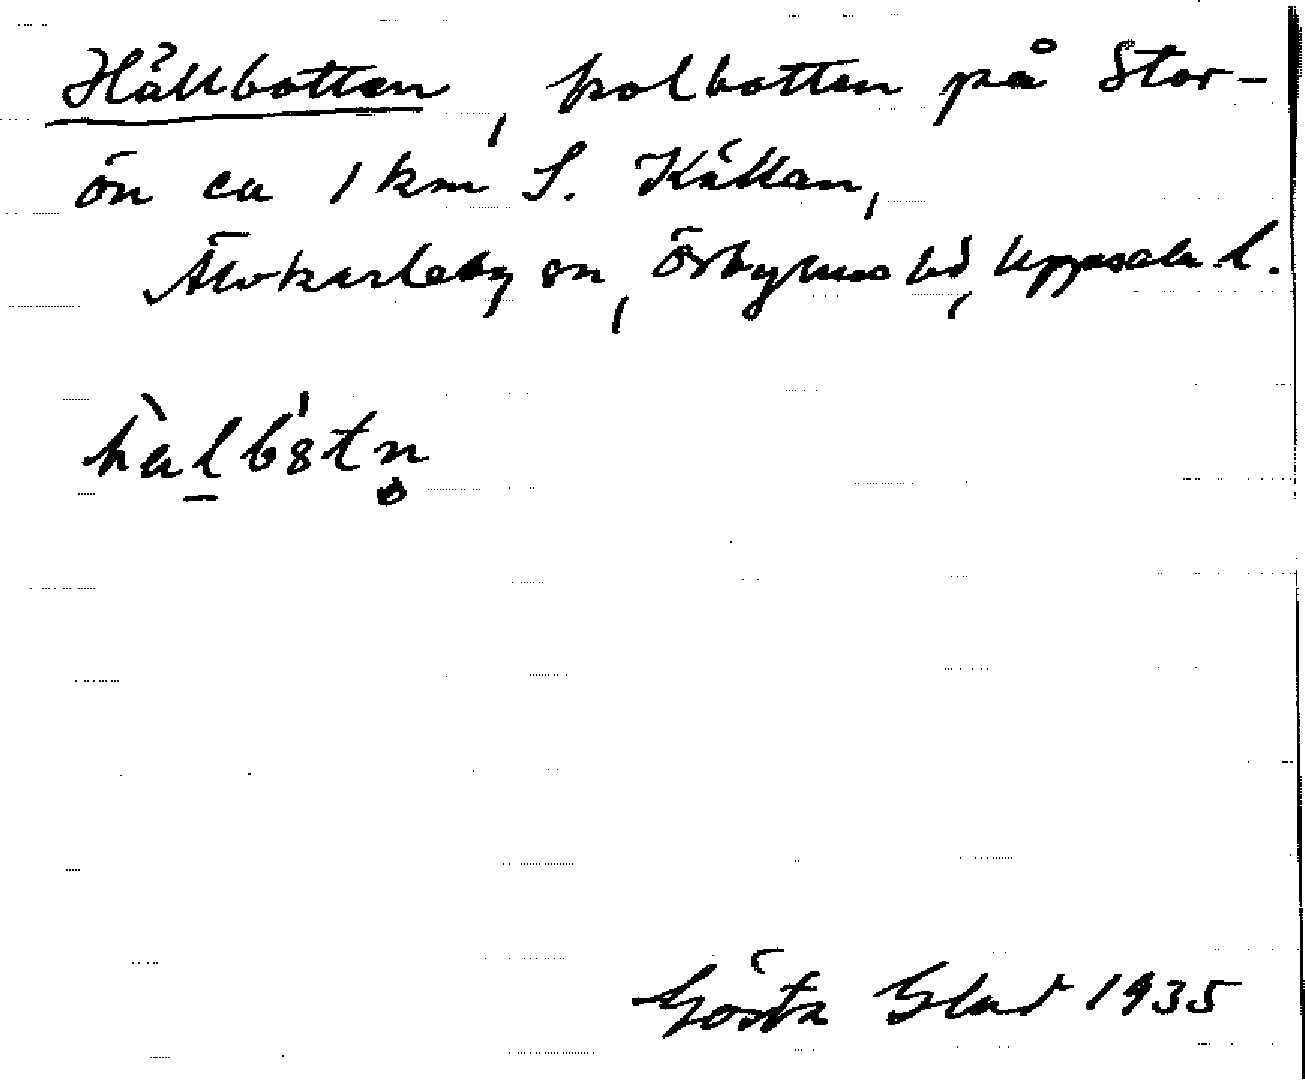 Hällbotten, kolbotten på Stor-
ön ca 1 km S. Källan,
Älvkarleby sn, Örbyhus hd, Uppsala l.
Gösta Blad 1935